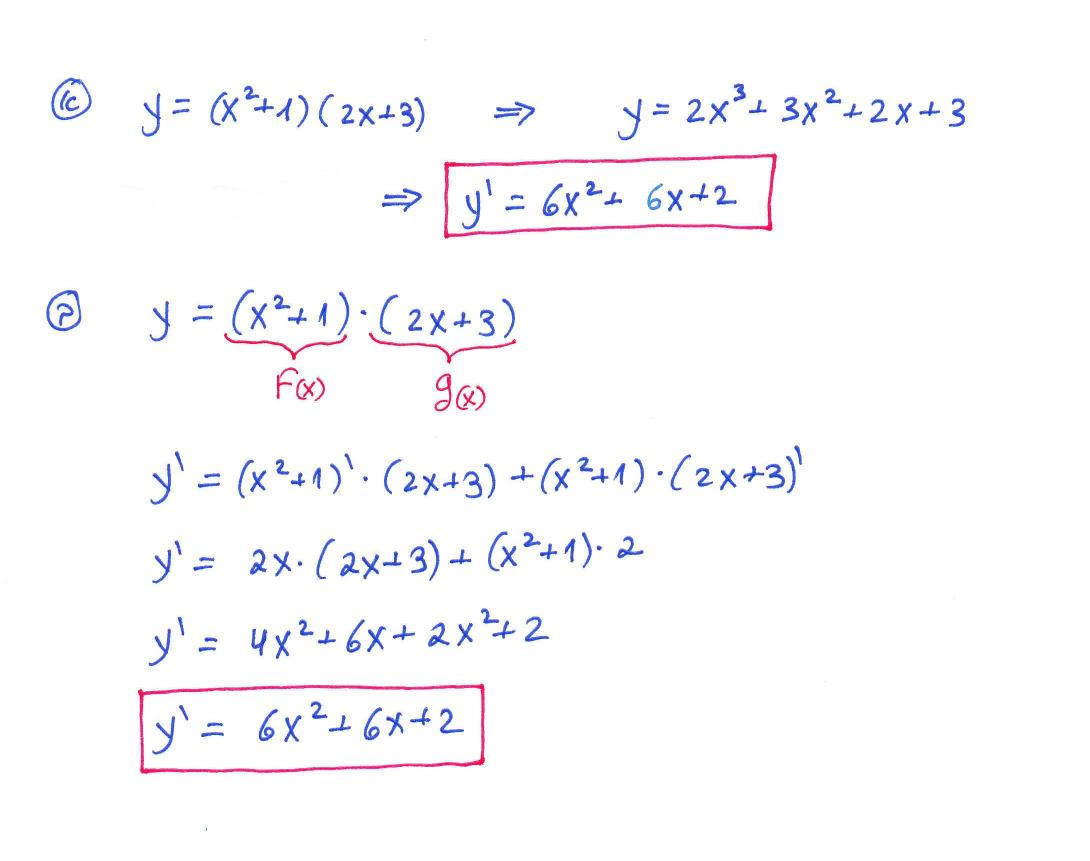 Ⓒ y = (x²+1)(2x+3) ⇒ y = 2x³+3x²+2x+3
⇒ y' = 6x²+6x+2
Ⓟ y = (x²+1)·(2x+3)
F(x) g(x)
y' = (x²+1)'·(2x+3)+(x²+1)·(2x+3)'
y' = 2x·(2x+3)+(x²+1)·2
y' = 4x²+6x+2x²+2
y' = 6x²+6x+2